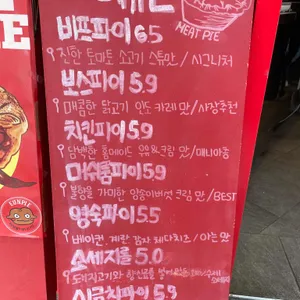 MEAT PIE
비프파이 6.5
진한 토마토 소고기 스튜맛 / 시그니처
보스파이 5.9
매콤한 닭고기 인도 카레 맛 / 사장추천
치킨파이 5.9
담백한 홈메이드 우유크림 맛 / 매니아층
머쉬룸파이 5.9
불향을 가미한 양송이버섯 크림 맛 / BEST
영숙파이 5.5
베이컨, 계란, 감자, 체다치즈 / 아는맛
소세지롤 5.0
시금치파이 5.9